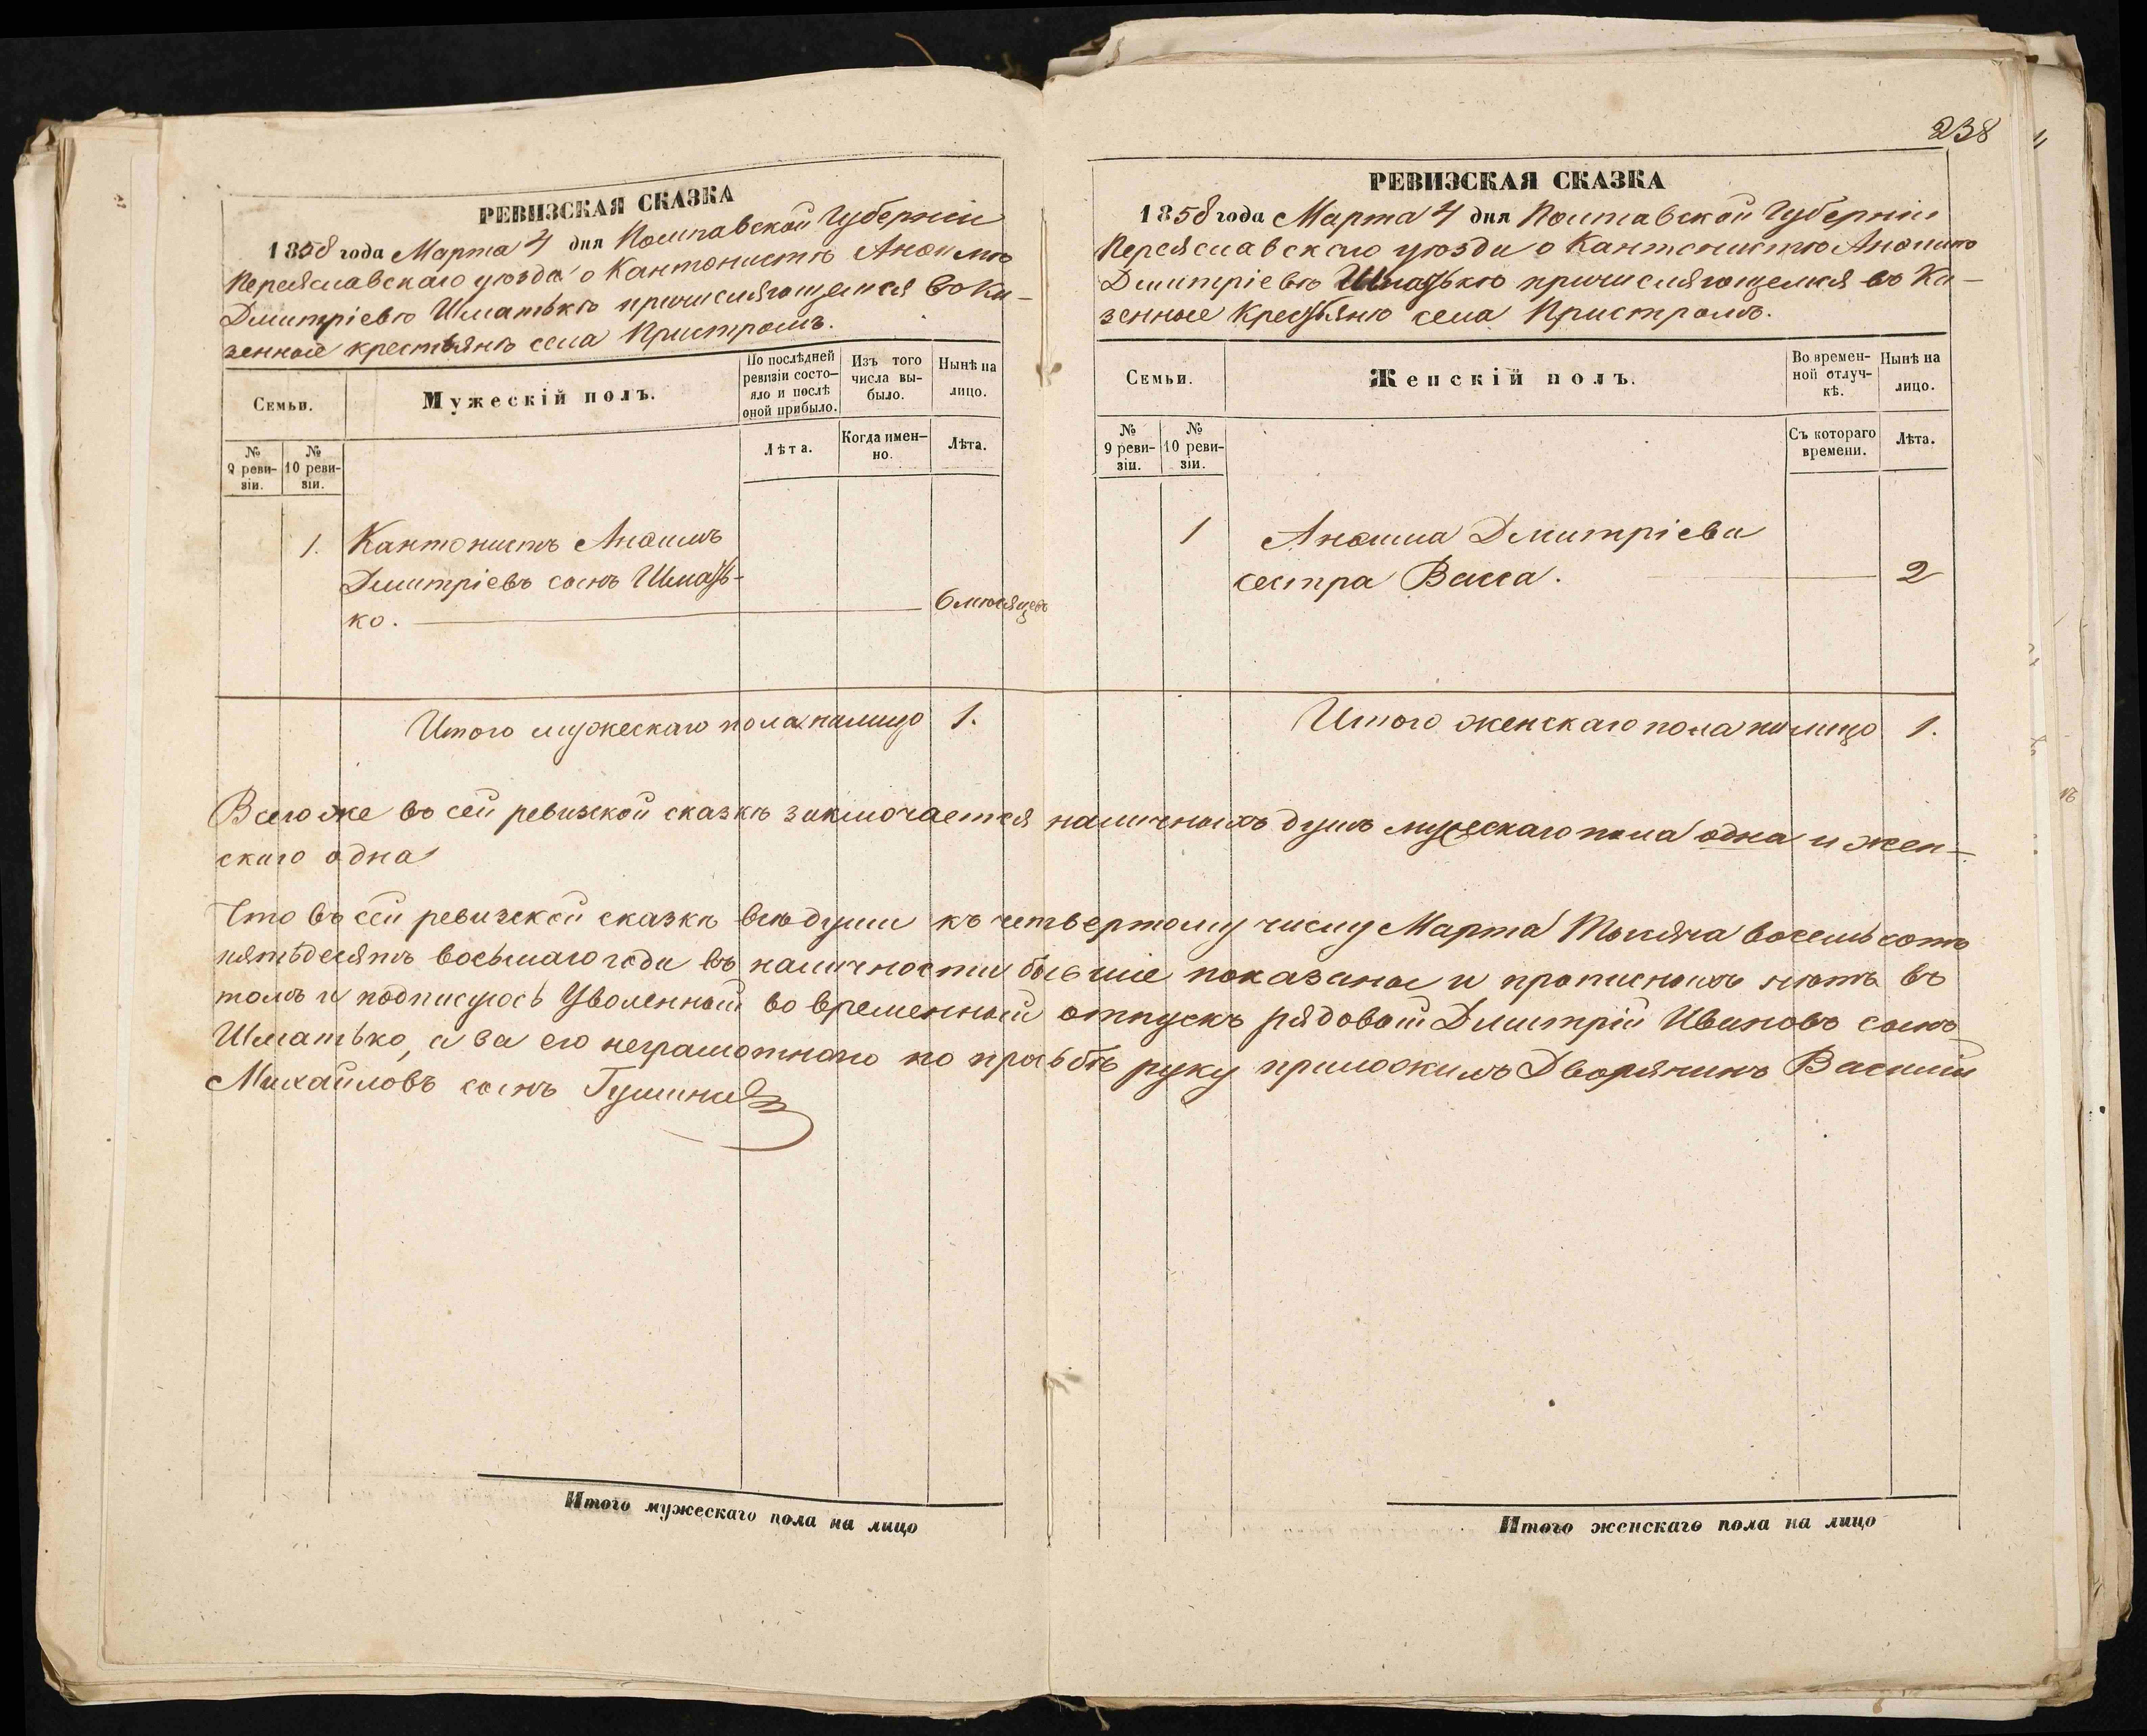 238
РЕВИЗСКАЯ СКАЗКА
1858 года Марта 4 дня Полтавской Губерніи
Переяславскаго уѣзда о Кантонистѣ
Дмитріевѣ Шматькѣ причисляющемся въ Ка-
зенные крестьянѣ села Пристромъ.
Семьи.
Мужескій полъ.
По послѣдней ревизіи состо-яло и послѣ оной прибыло.
Изъ того числа вы-было.
Нынѣ на лицо.
№ 9 реви-зіи.
№ 10 реви-зіи.
Лѣта.
Когда имен-но.
Лѣта.
1. Кантонистъ
Дмитріевъ сынъ Шмать-
ко. 6 мѣсяцевъ
Итого мужескаго пола налицо 1.
РЕВИЗСКАЯ СКАЗКА
1858 года Марта 4 дня Полтавской Губерніи
Переяславскаго уѣзда о Кантонистѣ
Дмитріевѣ Шматькѣ причисляющемся въ Ка-
зенные Крестьянѣ села Пристромъ.
Семьи.
Женскій полъ.
Во времен-ной отлуч-кѣ.
Нынѣ на лицо.
№ 9 реви-зіи.
№ 10 реви-зіи.
Съ котораго времени.
Лѣта.
1 Дмитріева
сестра Васса. 2
Итого женскаго пола налицо 1.
Всего же въ сей ревизской сказкѣ заключается наличныхъ душъ мужескаго пола одна и жен-
скаго одна
Что въ сей ревизской сказкѣ всѣ души къ четвертому числу Марта Тысяча восемь сотъ
пятьдесятъ восьмаго года въ наличности бывшіе показаны и прописныхъ нѣтъ въ
томъ и подписуюсь Уволенный во временный отпускъ рядовый Дмитрій Ивановъ сынъ
Шматько, а за его неграмотнаго по прозьбѣ руку приложилъ Дворянинъ Василій
Михайловъ сынъ
Итого мужескаго пола на лицо
Итого женскаго пола на лицо